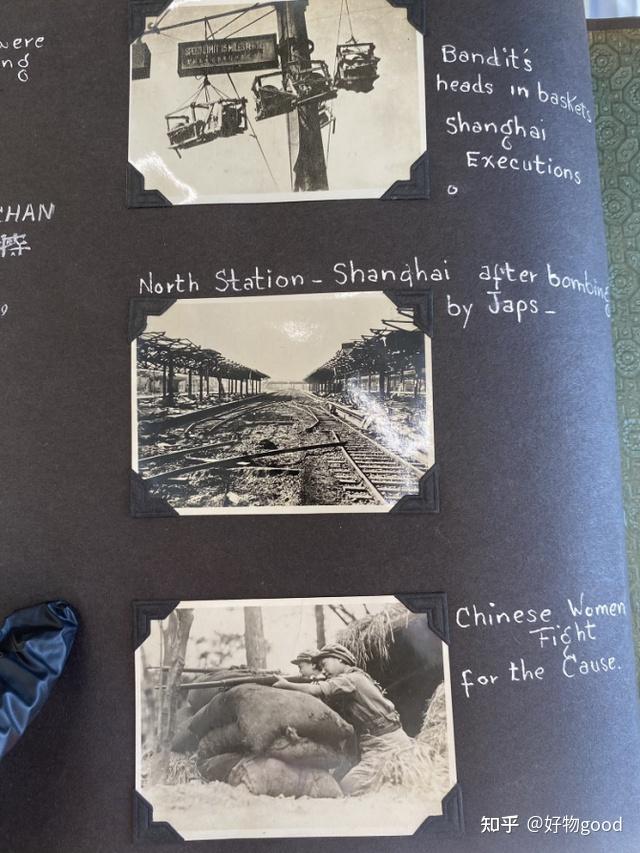 were
ng
Bandit's
heads in baskets
Shanghai
Executions
CHAN
9
North Station - Shanghai after bombing
by Japs -
Chinese Women
Fight
for the Cause.
知乎 @好物good